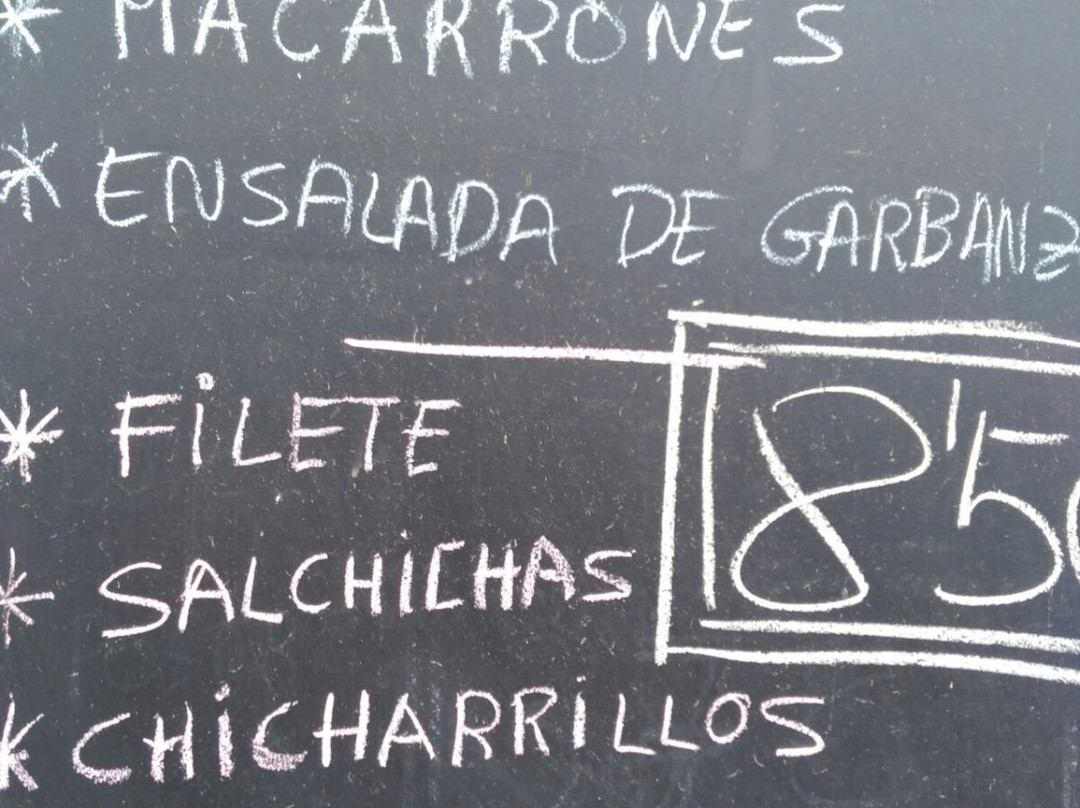 * MACARRONES
* ENSALADA DE GARBANZ
* FiLETE
8'50
* SALCHiCHAS
* CHiCHARRiLLOS